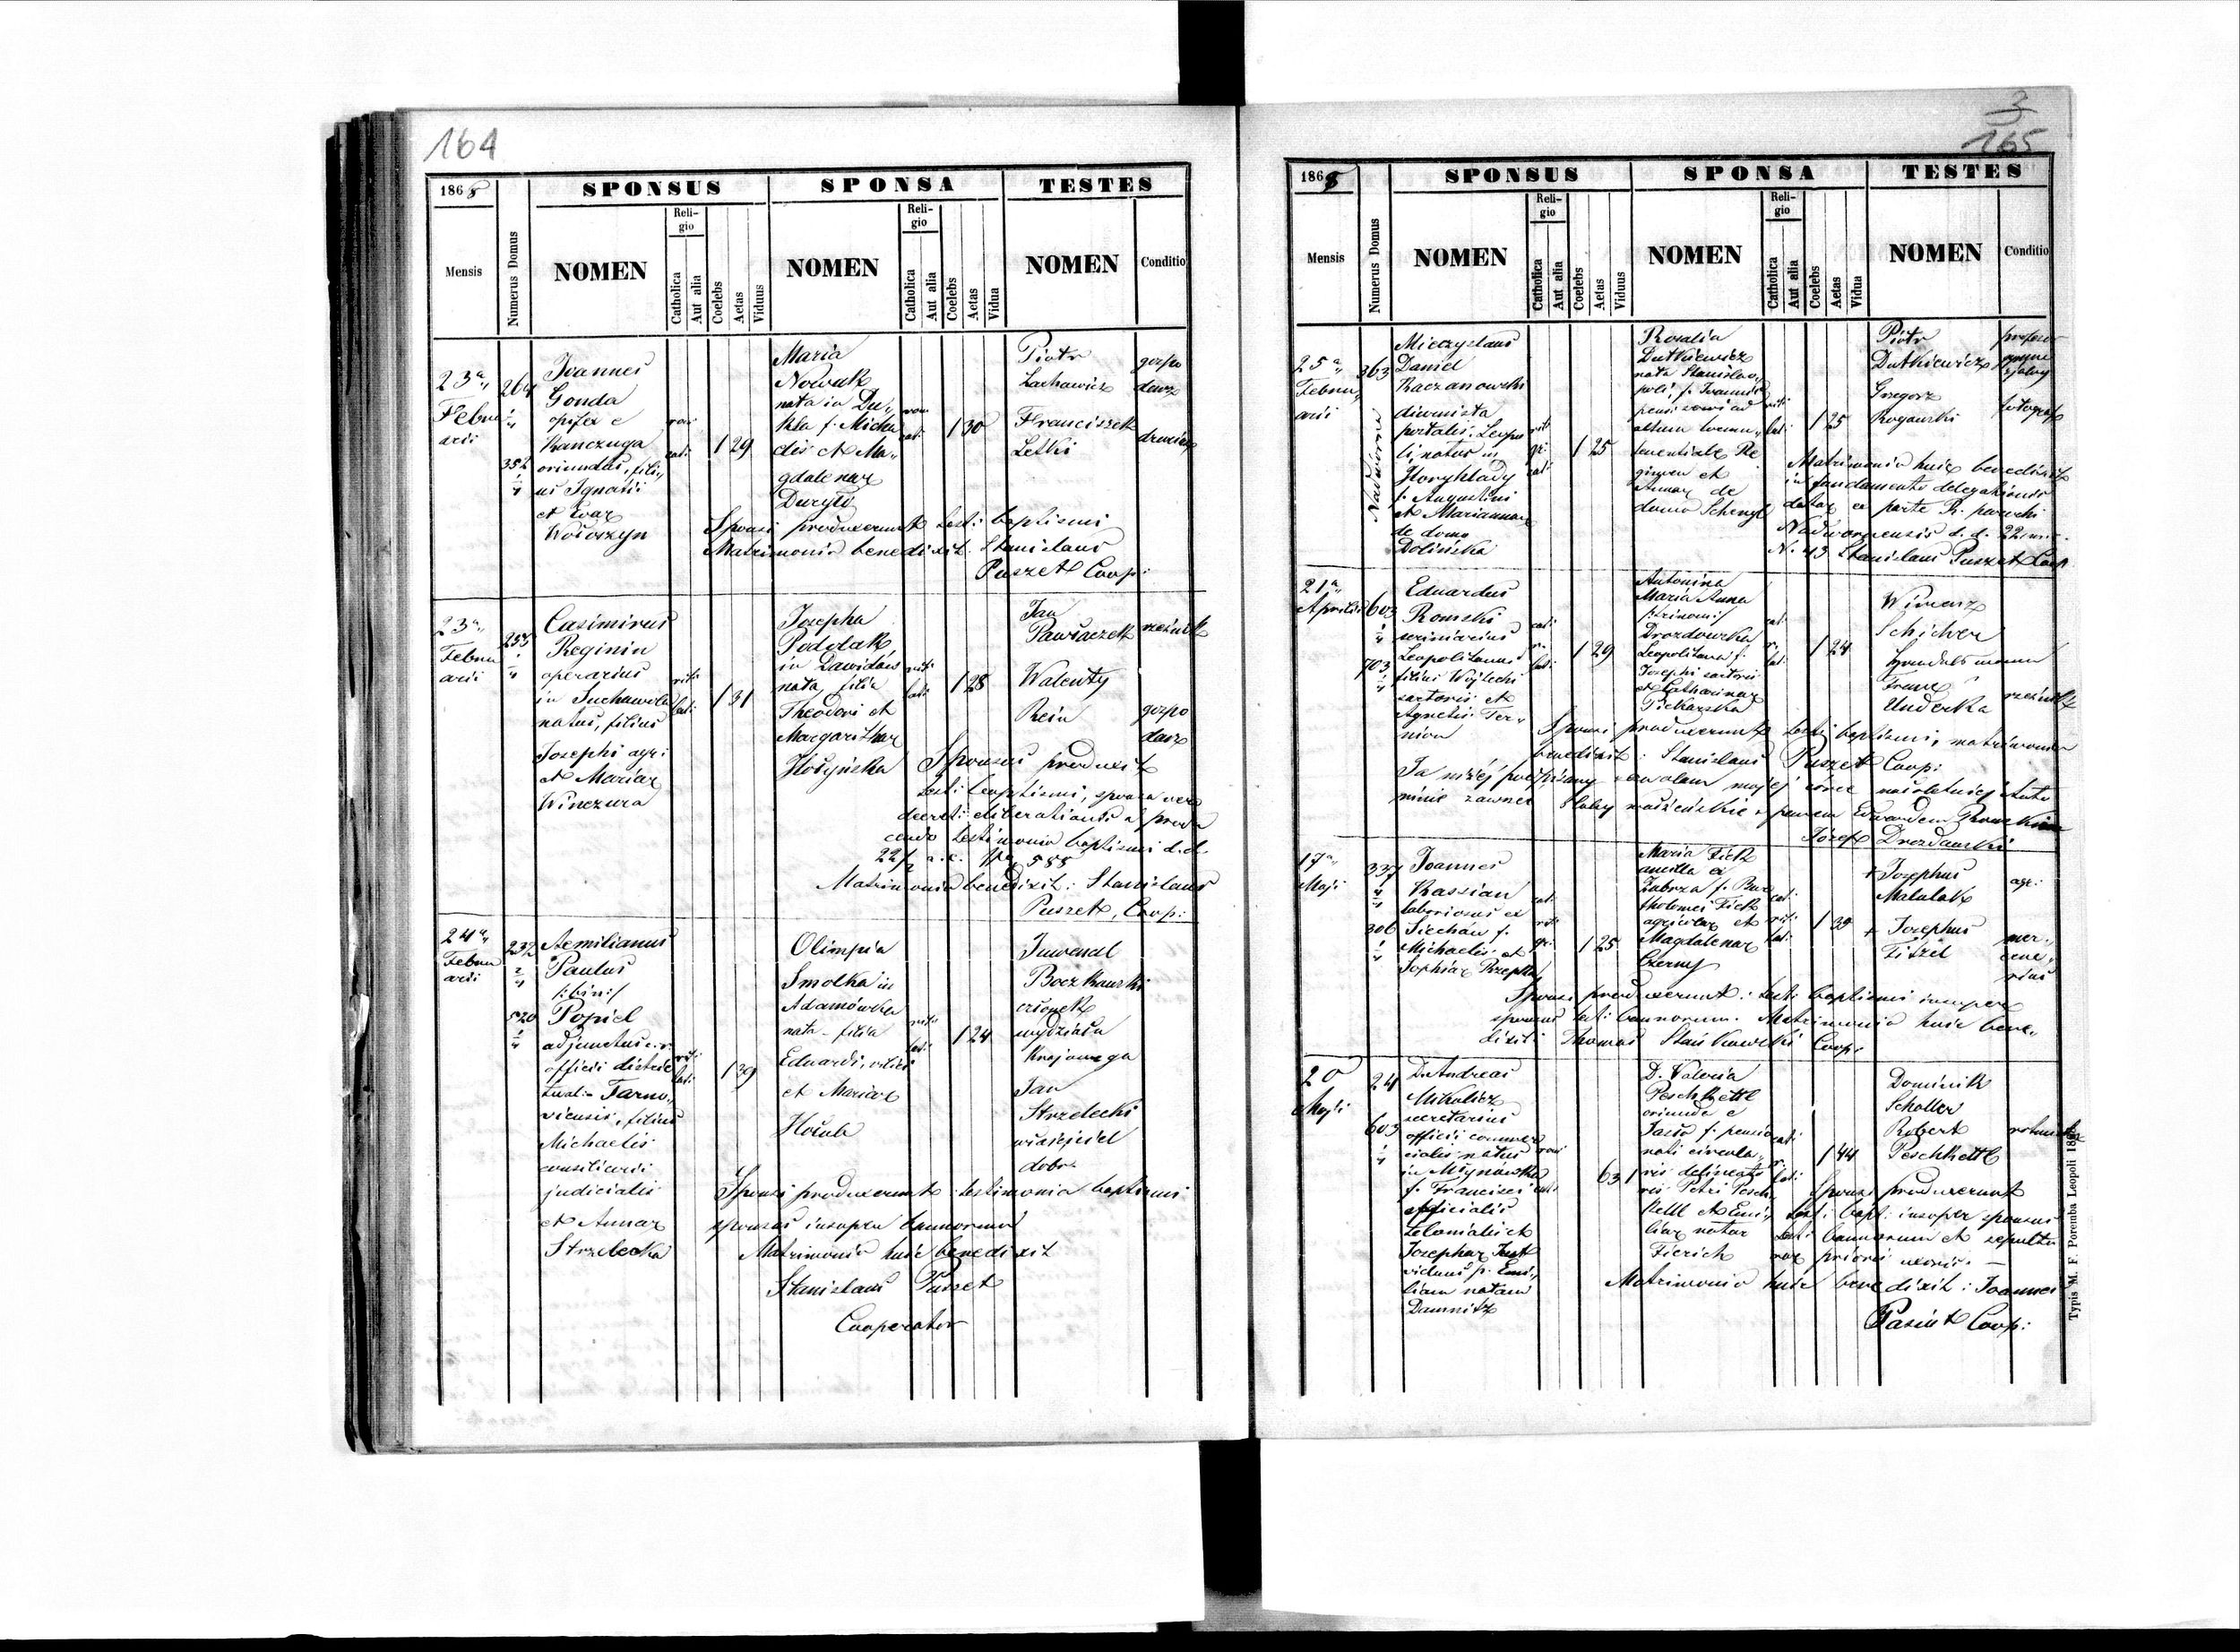 164
1868
SPONSUS
SPONSA
TESTES
Mensis
Numerus Domus
NOMEN
Religio
Catholica
Aut alia
Coelebs
Aetas
Viduus
NOMEN
Religio
Catholica
Aut alia
Coelebs
Aetas
Vidua
NOMEN
Conditio
23a
Februarii
264
1/4
352
1/4
Joannes
Gonda
opifex e
Kanczuga
oriundus, fili„
us Ignatii
et Evae
Wołoszyn
1 29
Maria
Nowak
nata in Du„
kla f. Micha
elis et Ma„
gdalenae
Duryło
1 30
Piotr
Lachawicz
gospo
darz
Franciszek
Letki
Sponsi produxerunt test: baptismi
Matrimonio benedixit: Stanislaus
Puszet Coop:
23a
Febru
arii
255
1/4
Casimirus
Reginin
operarius
in Suchawola
natus, filius
Josephi agr:
et Mariae
Winczura
rit:
lat:
1 31
Josepha
Poddak
in Dawidów
nata, filia
Theodori et
Margarithae
Hołyńska
rit:
lat:
1 28
Jan
Pawlaczek
rzeźnik
Walenty
Rein
gospo
darz
Sponsus produxit
test: baptismi, sponsa vero
decret: liberationis a produ
cendo testimonio baptismi d.d.
22/2 a.c. 585
Matrimonio benedixit: Stanislaus
Puszet, Coop:
24a
Febru
arii
232
2/4
520
1/4
Aemilianus
Paulus
/:bin:/
Popiel
adjunctus c.r.
officii distric
tual: Tarno„
viensis, filius
Michaelis
consiliarii
judicialis
et Annae
Strzelecka
rit:
lat:
1 39
Olimpia
Smolka in
Adamówka
nata - filia
Eduardi, 
et Mariae
Hołub
rit:
lat:
1 24
Juvenal
Boczkowski
członek
wydziału
krajowego
Jan
Strzelecki
właściciel
dobr
Sponsi produxerunt testimonia baptismi
sponsus insuper bannorum
Matrimonio huic benedixit
Stanislaus Puszet
Cooperator
3
165
1868
SPONSUS
SPONSA
TESTES
Mensis
Numerus Domus
NOMEN
Religio
Catholica
Aut alia
Coelebs
Aetas
Viduus
NOMEN
Religio
Catholica
Aut alia
Coelebs
Aetas
Vidua
NOMEN
Conditio
25a
Febru„
arii
363
Nadwórna
Mieczyslaus
Daniel
Kaczanowski
diurnista
postalis Leopo
li, natus in
Horyhlady
f. Augustini
et Mariannae
de domo
Dolińska
rit:
gr:
cat:
1 25
Rosalia
Dutkiewicz
nata Stanislao„
poli, f. Joannis
et
Annae de
domo
rit:
lat:
1 25
Piotr
Dutkiewicz
profesor
Grzegorz
Rogowski
fotograf
Matrimonio huic benedixit
in fundamento delegationis
datae ex parte R. parochi
Nadwornensis d.d. 22
N. 43 Stanislaus Puszet Coop
21a
Aprilis
603
1/4
703
1/4
Eduardus
Romski
scriniarius
Leopolitanus
filius
sartoris et
Agnetis Ter„
nion
cat:
r.
lat:
1 29
Antonina
Maria Anna
/:trinom:/
Drozdowska
Leopolitana f.
Josephi sartoris
et Catharinae
Piekarska
cat:
r.
lat:
1 24
Schicher
Franz
Underka
rzeźnik
Sponsi produxerunt test: baptismi, matrimonio
benedixit: Stanislaus Puszet Coop:
Ja niżej podpisany zezwalam mojej córce małoletniej Anto
ninie zawrzeć śluby małżeńskie z panem Edwardem Romskim
Józef Drozdowski
17a
Maji
337
1/4
306
1/4
Joannes
Kassian
laboriosus ex
Siechów f.
Michaelis et
Sophiae Rzepka
cat:
rit:
gr:
1 25
Maria Fick
ancilla ex
Zubrza f. Bar
tholomei Fick
agricolae et
Magdalenae
Czerny
cat:
rit:
lat:
1 30
+ Josephus
Matulak
agr:
+ Josephus
Fitzel
mer„
cena„
rius
Sponsi produxerunt: test: baptismi insuper
sponsus test: bannorum. Matrimonio huic bene„
dixit: Thomas Stańkowski Coop:
20
Maji
24
603
1/4
D. Andreas
Mikolicz
secretarius
officii commer
cialis natus
in Mlynówka
f. Francisci
officialis
telonialis et
Josephae Just
viduus p. Emi„
liam natam
Daunitz
63 1
D. Valeria
Peschkettl
oriunda e
Jasło f. pensio
nati circula„
ris
Petri Pesch„
kettl et Emi„
liae natae
Fierich
cat:
r.
lat:
1 44
Dominik
Scholler
Robert
Peschkettl
Sponsi produxerunt
test: bapt: insuper sponsus
test: bannorum et sepultu
rae prioris uxoris. —
Matrimonio huic benedixit: Joannes
Pasiut Coop:
Typis M. F. Poremba Leopoli 186